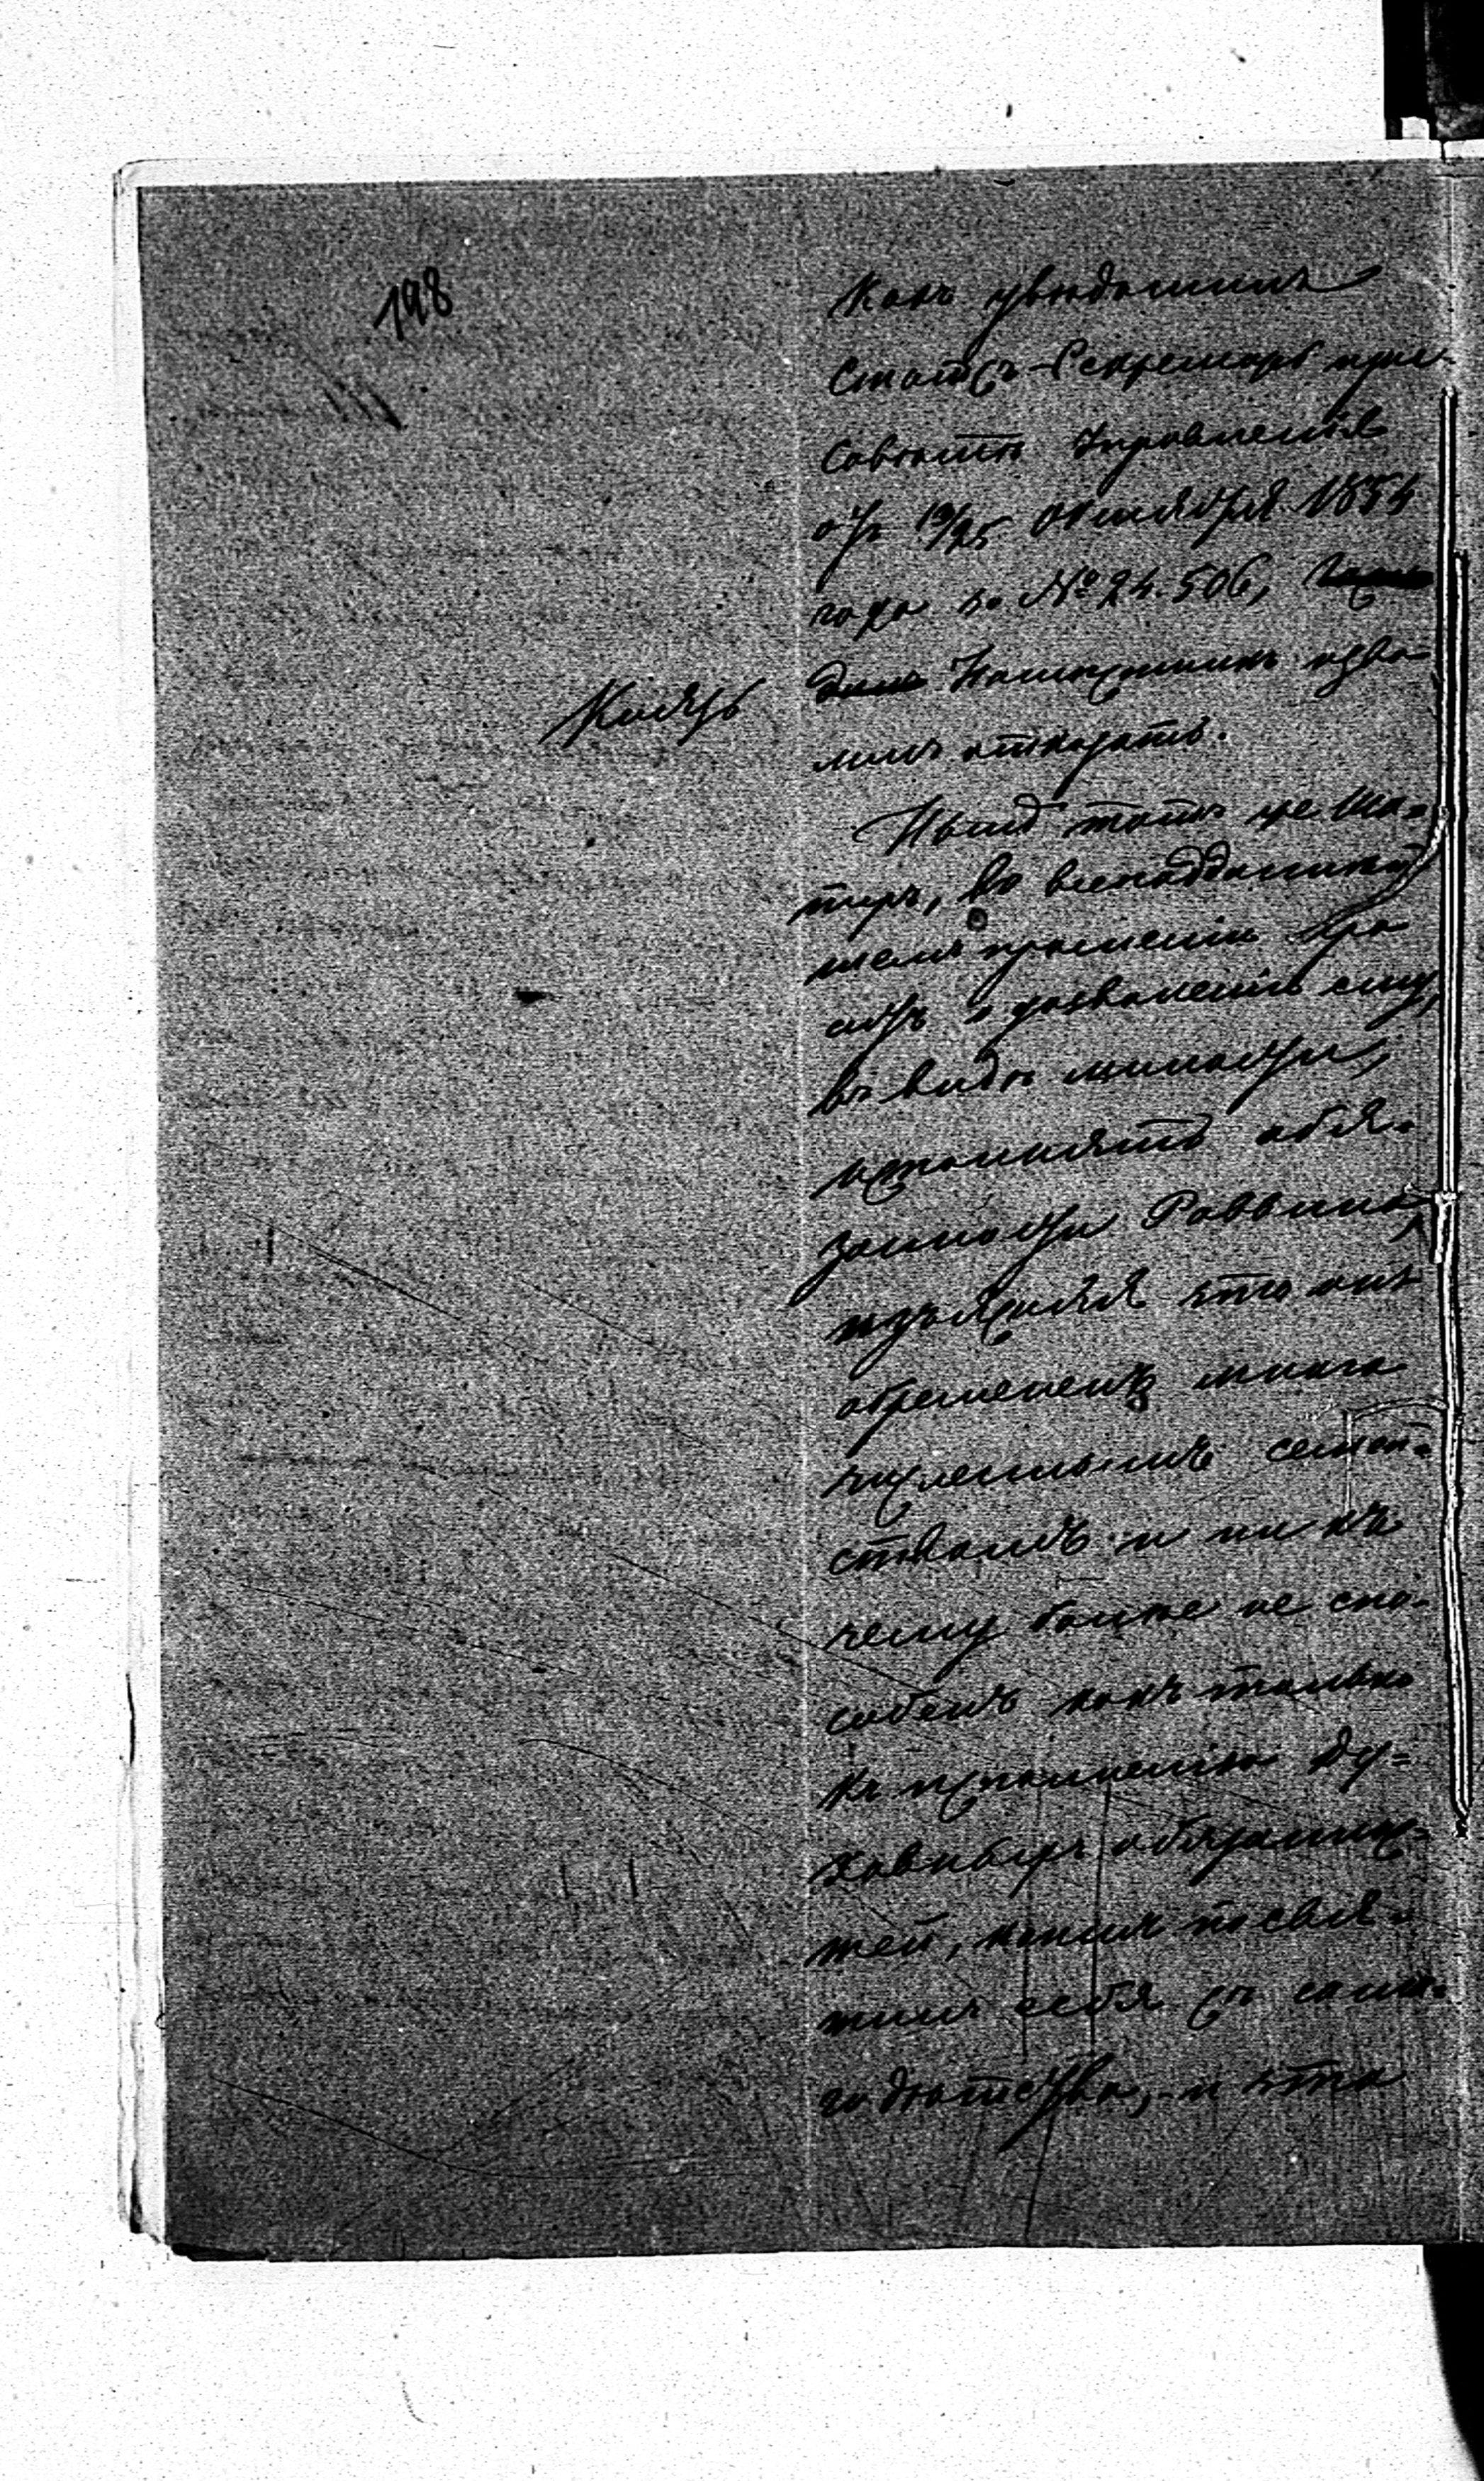 198
Какъ увѣдомилъ
Статсъ-Секретарь при
Совѣтѣ Управленія
отъ 13/25 Октября 1854
года за № 24.506,
Князь
Намѣстникъ изво-
лилъ отказать.
Нынѣ тотъ же Ша-
теръ, во всеподданнѣй
шемъ прошеніи про
ситъ о дозволеніи ему,
въ видѣ милости,
исполнять обя-
занности Раввина,
изъясняя что онъ
обремененъ много
численнымъ семей-
ствомъ и ни къ
чему болѣе не спо-
собенъ какъ только
къ исполненію Ду-
ховныхъ обязаннос-
тей, коимъ посвя-
тилъ себя съ сама-
го дѣтства, и что